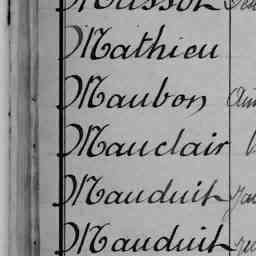 Masson
Mathieu
Maubon
Mauclair
Mauduit
Mauduit